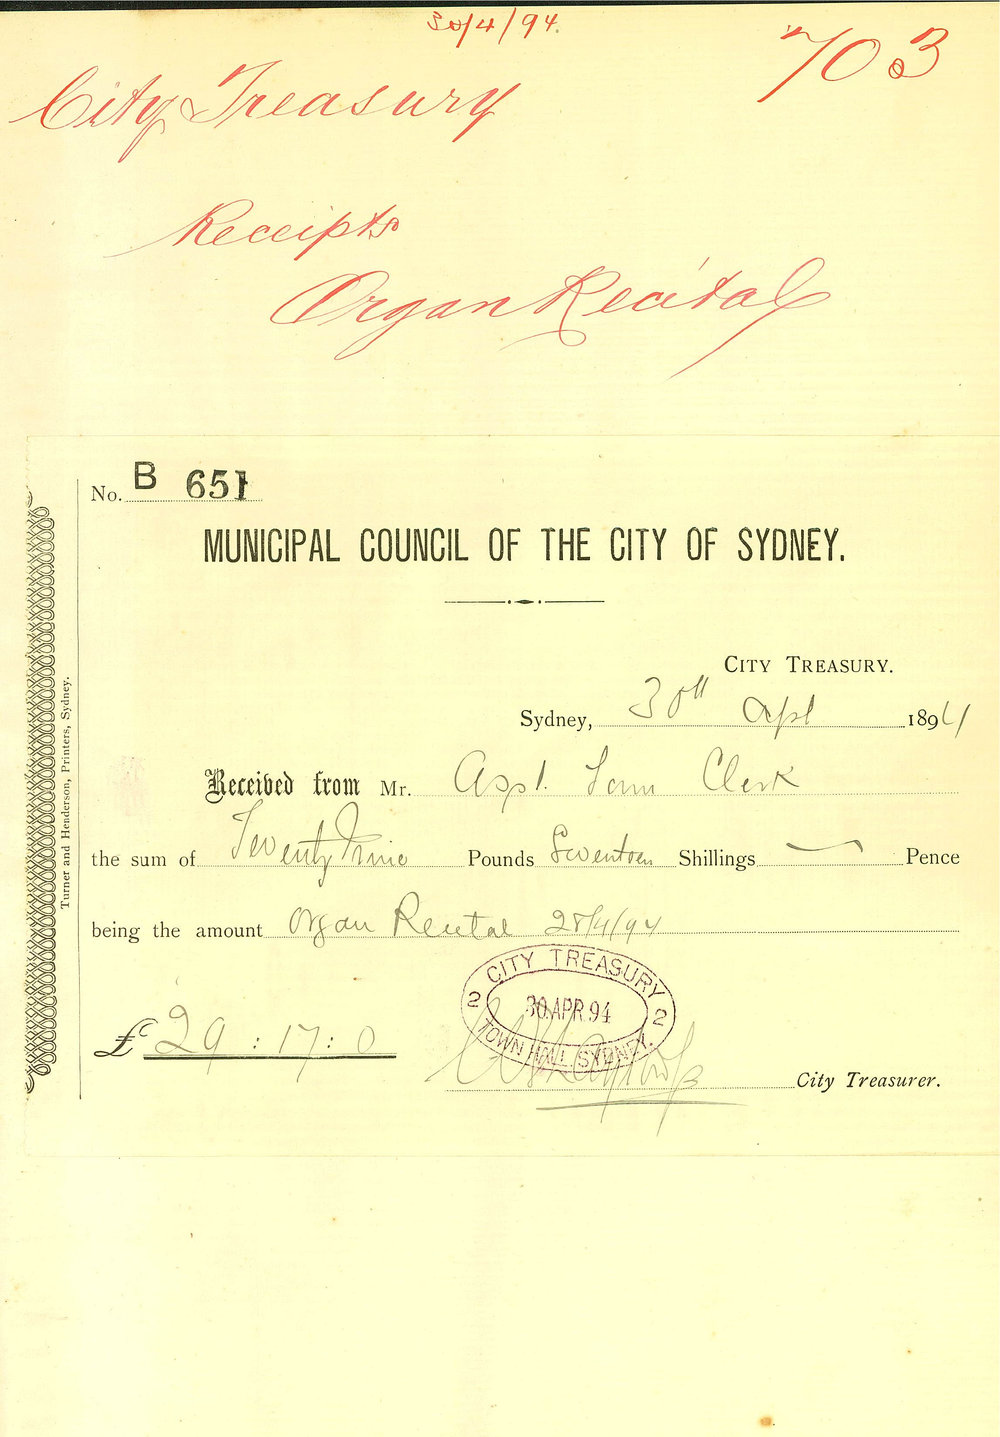 30/4/94.
703
City Treasury
Receipts
Organ Recital
No. B 651
MUNICIPAL COUNCIL OF THE CITY OF SYDNEY.
CITY TREASURY.
Sydney, 30th Apl 1894
Received from Mr. Town Clerk
the sum of Twenty Nine Pounds Seventeen Shillings — Pence
being the amount Organ Recital 28/4/94
£ 29 : 17 : 0
CITY TREASURY
2 30 APR 94 2
TOWN HALL SYDNEY.
City Treasurer.
Turner and Henderson, Printers, Sydney.